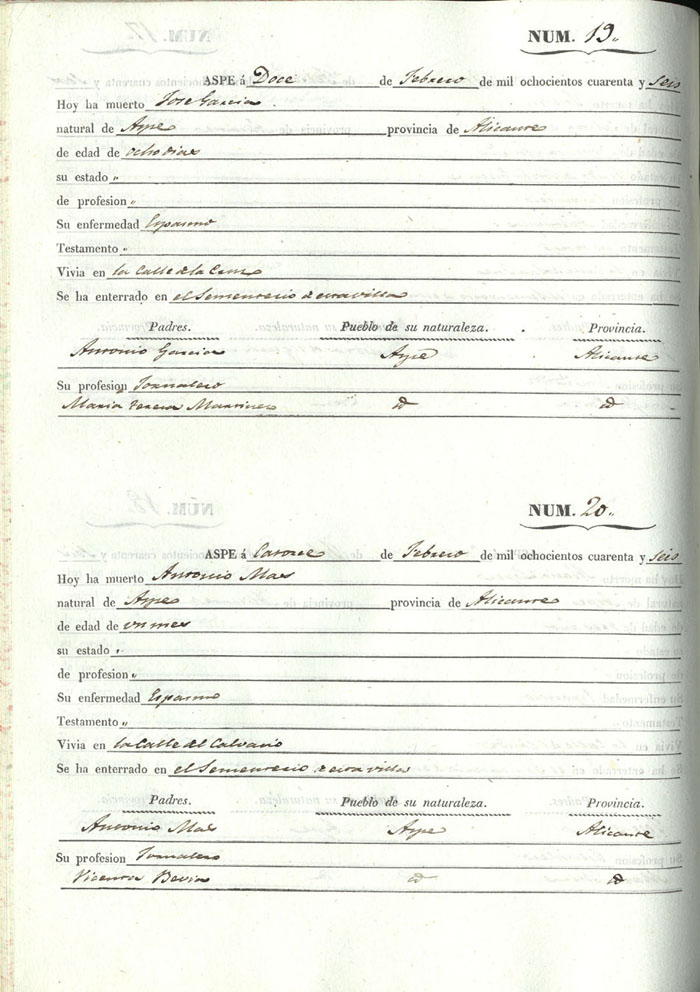 NUM. 19.
ASPE á Doce de Febrero de mil ochocientos cuarenta y seis
Hoy ha muerto Jose Garcia
natural de Aspe provincia de Alicante
de edad de ocho dias
su estado "
de profesion "
Su enfermedad Espasmo
Testamento "
Vivia en la Calle de la Cruz
Se ha enterrado en el Sementerio de esta villa
Padres. Pueblo de su naturaleza. Provincia.
Antonio Garcia Aspe Alicante
Su profesion Jornalero
Maria Teresa Martinez id id
NUM. 20.
ASPE á Catorce de Febrero de mil ochocientos cuarenta y seis
Hoy ha muerto Antonio Mas
natural de Aspe provincia de Alicante
de edad de un mes
su estado "
de profesion "
Su enfermedad Espasmo
Testamento "
Vivia en la Calle del Calvario
Se ha enterrado en el Sementerio de esta villa
Padres. Pueblo de su naturaleza. Provincia.
Antonio Mas Aspe Alicante
Su profesion Jornalero
Vicenta Bevia id id